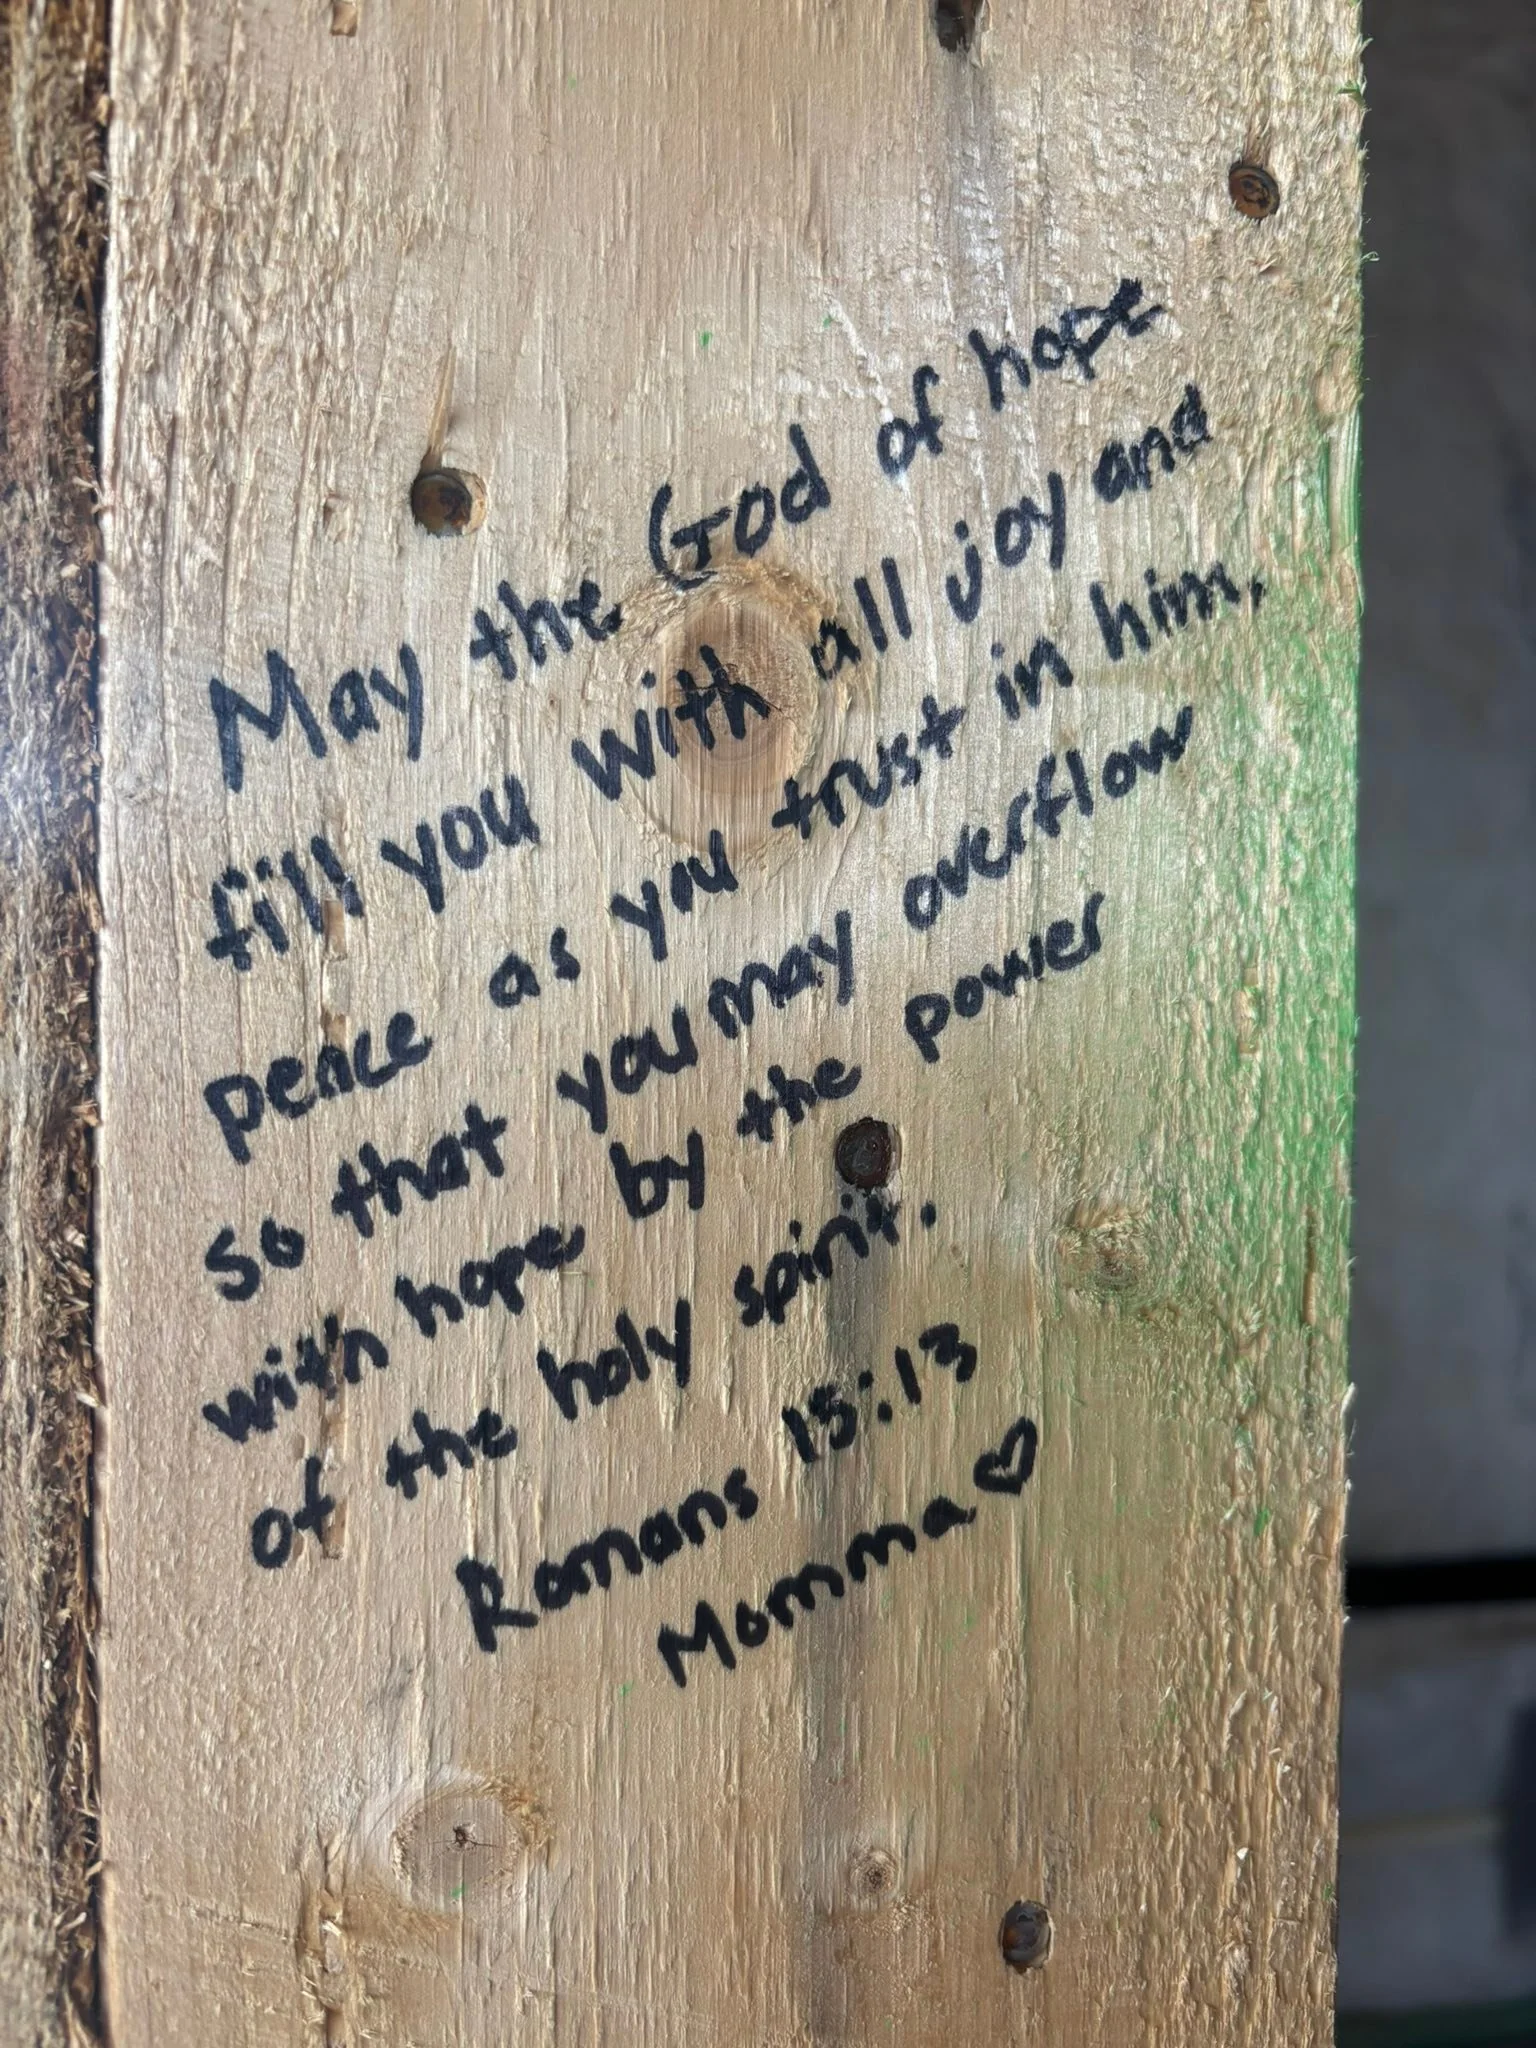 May the God of hope
fill you with all joy and
peace as you trust in him,
so that you may overflow
with hope by the power
of the holy spirit.
Romans 15:13
Momma ♡